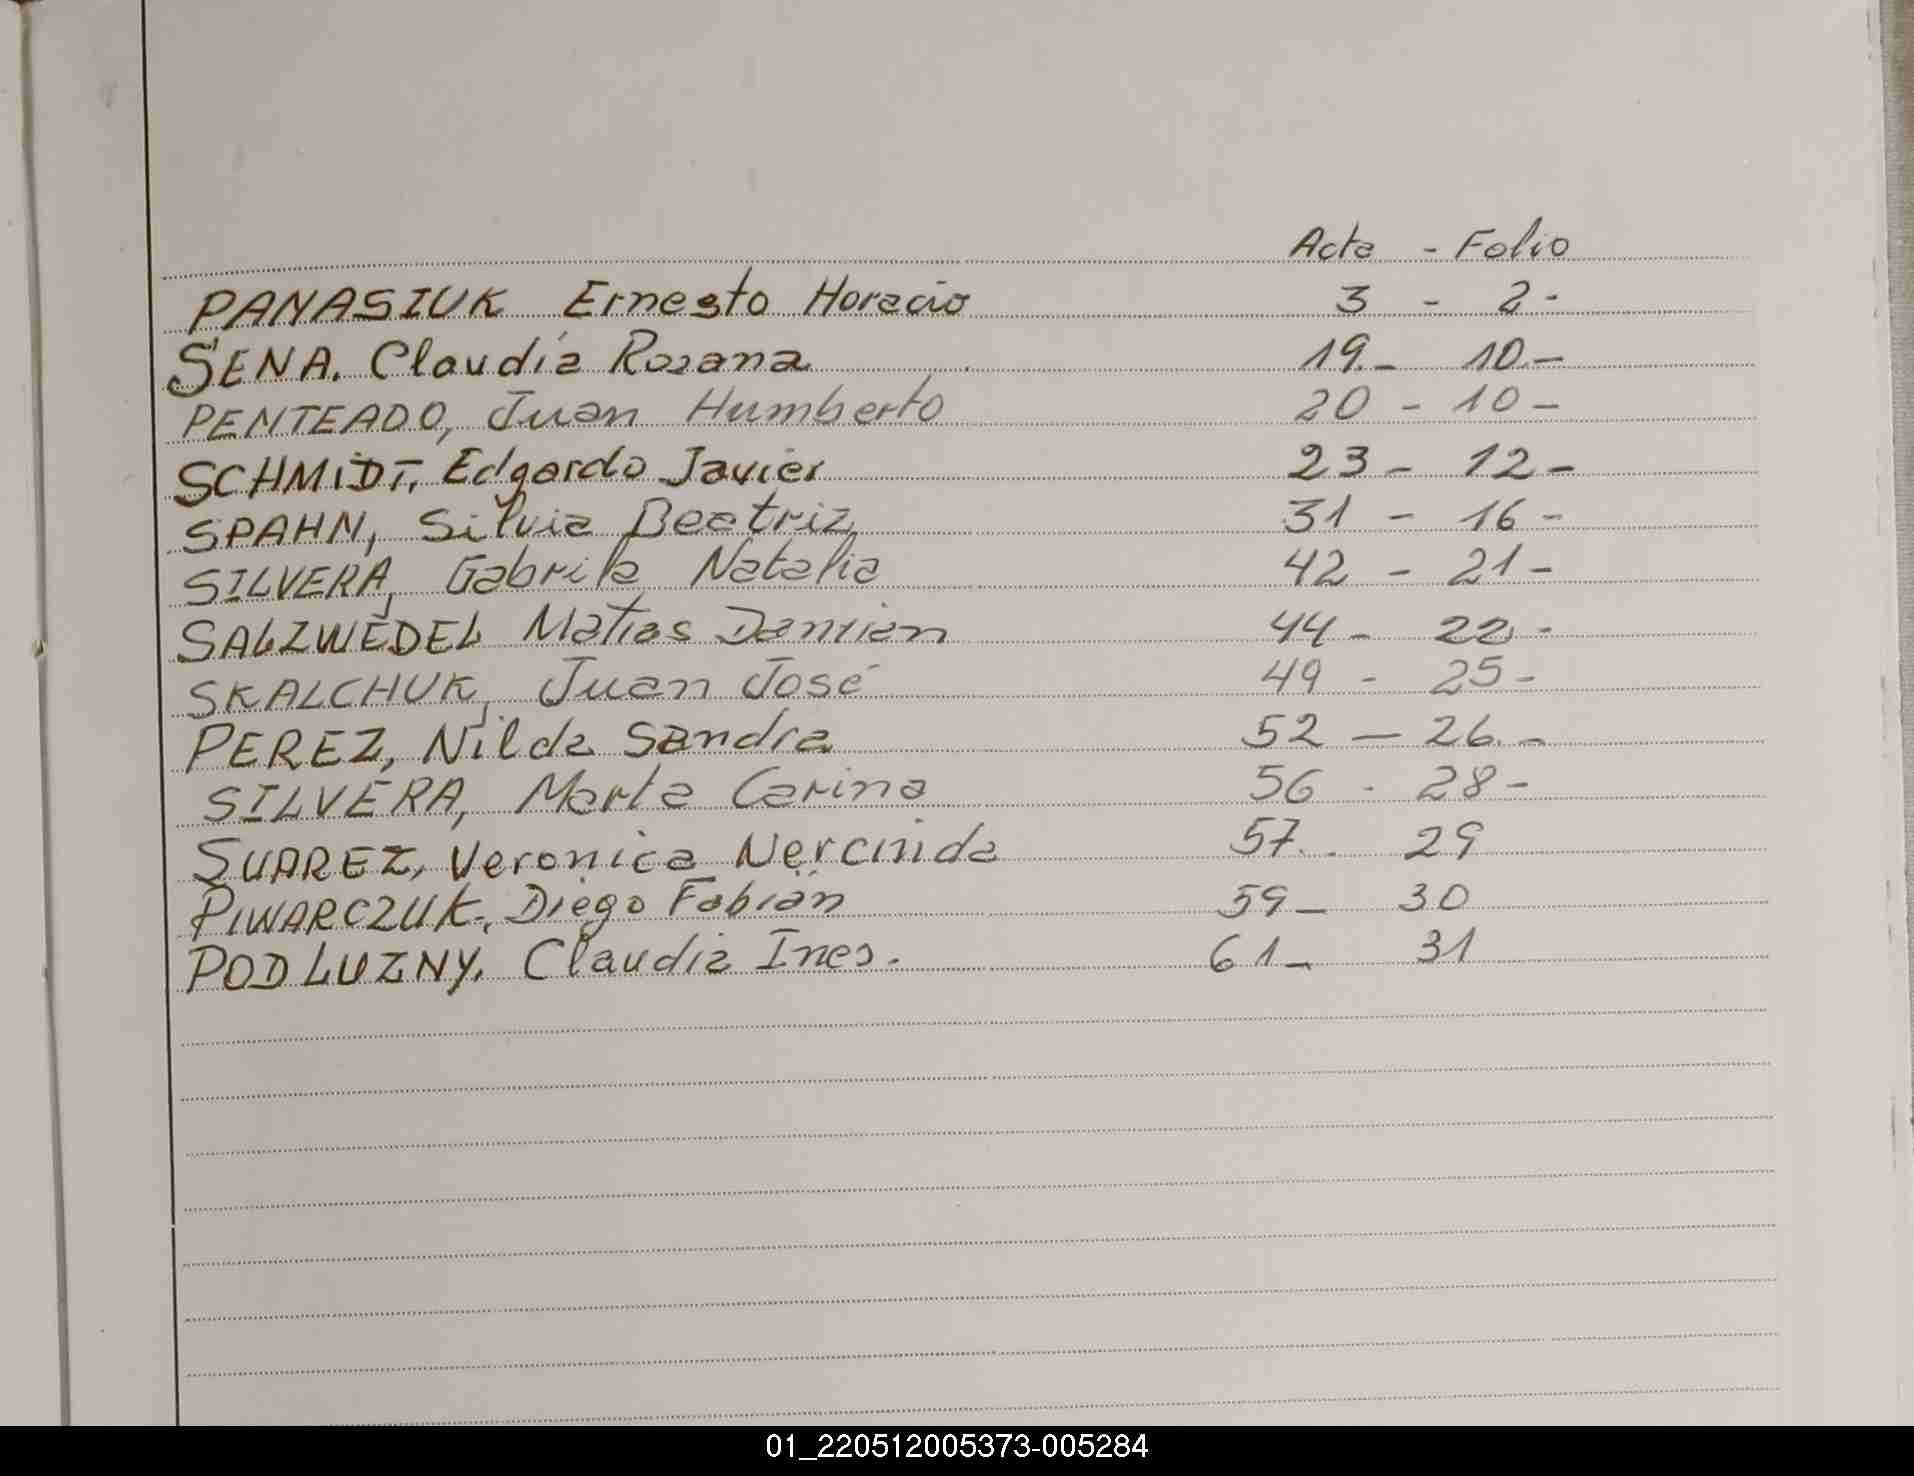 Acta - Folio
PANASIUK Ernesto Horacio 3 - 2 -
SENA. Claudia Rosana 19.- 10.-
PENTEADO, Juan Humberto 20 - 10 -
SCHMIDT, Edgardo Javier 23 - 12 -
SPAHN, Silvia Beatriz 31 - 16 -
SILVERA, Gabrila Natalia 42 - 21 -
SALZWEDEL Matias Damian 44 - 22 -
SKALCHUK, Juan José 49 - 25 -
PEREZ, Nilda Sandra 52 - 26.-
SILVERA, Marta Carina 56 - 28 -
SUAREZ, Veronica 57.. 29
PIWARCZUK, Diego Fabián 59 - 30
PODLUZNY. Claudia Ines. 61 - 31
01_220512005373-005284